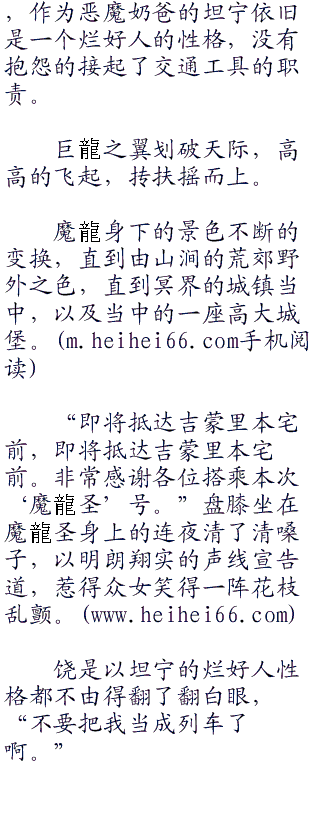 ，作为恶魔奶爸的坦宁依旧
是一个烂好人的性格，没有
抱怨的接起了交通工具的职
责。
巨龍之翼划破天际，高
高的飞起，抟扶摇而上。
魔龍身下的景色不断的
变换，直到由山涧的荒郊野
外之色，直到冥界的城镇当
中，以及当中的一座高大城
堡。(m.heihei66.com手机阅
读)
“即将抵达吉蒙里本宅
前，即将抵达吉蒙里本宅
前。非常感谢各位搭乘本次
‘魔龍圣’号。”盘膝坐在
魔龍圣身上的连夜清了清嗓
子，以明朗翔实的声线宣告
道，惹得众女笑得一阵花枝
乱颤。(www.heihei66.com)
饶是以坦宁的烂好人性
格都不由得翻了翻白眼，
“不要把我当成列车了
啊。”